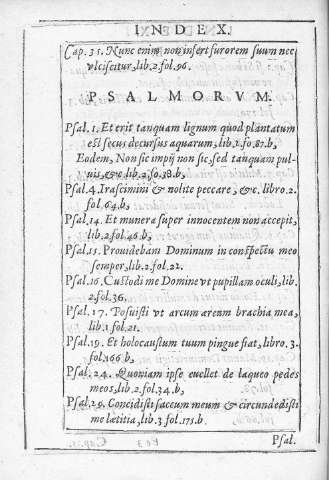 INDEX.
Cap. 35. Nunc enim non infert furorem suum nec
vlciscitur, lib. 2. fol. 96.
PSALMORVM.
Psal. 1. Et erit tanquam lignum quod plantatum
est secus decursus aquarum, lib. 1. fo. 87. b,
Eodem, Non sic impij non sic, sed tanquam pul-
uis, &c. lib. 2, fo. 38. b,
Psal. 4. Irascimini & nolite peccare, &c. libro. 2.
fol. 64. b,
Psal. 14. Et munera super innocentem non accepit,
lib. 2. fol. 46. b,
Psal. 15. Prouidebam Dominum in conspectu meo
semper, lib. 2. fol. 22.
Psal. 16. Custodi me Domine vt pupillam oculi, lib.
2. fol. 36.
Psal. 17. Posuisti vt arcum areum brachia mea,
lib. 1. fol. 21.
Psal. 19. Et holocaustum tuum pingue fiat, libro. 3.
fol. 166 b,
Psal. 24. Quoniam ipse euellet de laqueo pedes
meos, lib. 2. fol. 34. b,
Psal. 29. Concidisti saccum meum & circundedisti
me lætitia, lib. 3. fol. 175. b.
Psal.